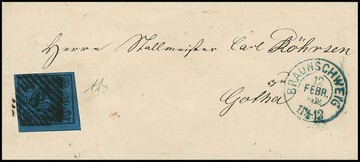 Herrn Stallmeister Carl Röhrsen
Gotha
BRAUNSCHWEIG
12
FEBR.